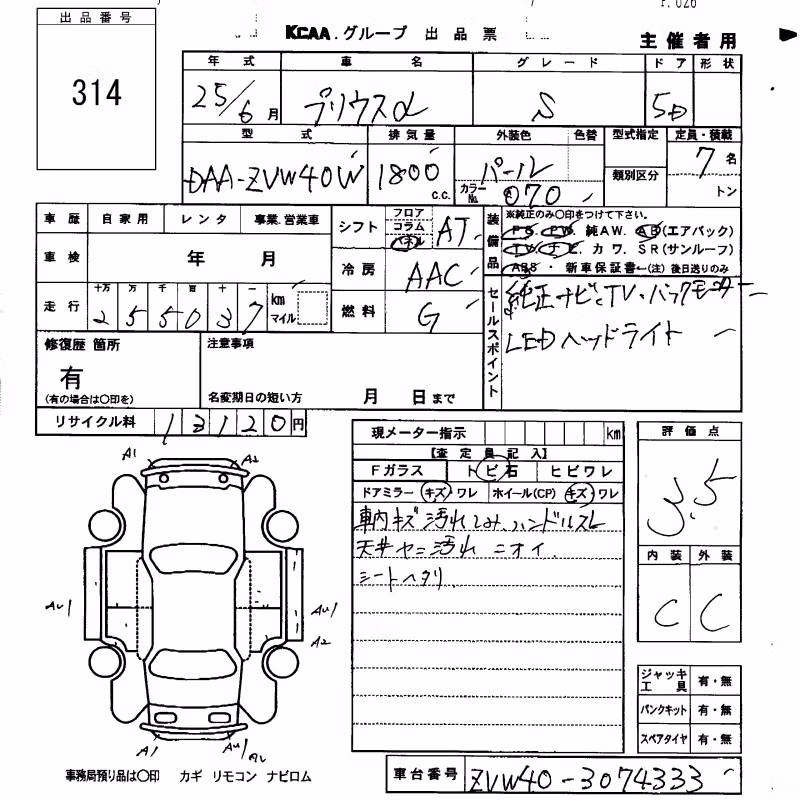 出品番号
314
KCAA.グループ 出品票
主催者用
年式 車名 グレード ドア 形状
25/6月 プリウスα S 5D
型式 排気量 外装色 色替 型式指定 定員・積載
DAA-ZVW40W 1800 c.c. パール カラーNo. 070 類別区分 7名
トン
車歴 自家用 レンタ 事業.営業車
車検 年 月
走行 十万 万 千 百 十 一 km マイル
255037
シフト フロア コラム パネル AT
冷房 AAC
燃料 G
装備品
※純正のみ○印をつけて下さい。
PS. PW. 純AW. AB(エアバック)
TV. ナビ. カワ. SR(サンルーフ)
ABS ・ 新車保証書←(注) 後日送りのみ
セールスポイント
純正ナビ TV バックモニター
LEDヘッドライト
修復歴 箇所
有
(有の場合は○印を)
注意事項
名変期日の短い方 月 日まで
リサイクル料 13120円
現メーター指示 km
【査定員記入】
Fガラス トビ石 ヒビワレ
ドアミラー キズ ワレ ホイール(CP) キズ ワレ
車内キズ 汚れ シミ ハンドルスレ
天井ヤニ汚れ ニオイ
シートヘタリ
評価点
3.5
内装 外装
C C
ジャッキ工具 有・無
パンクキット 有・無
スペアタイヤ 有・無
A1 A2
AU1 AU1
A2
A1 AU1
事務局預り品は○印 カギ リモコン ナビロム
車台番号 ZVW40-3074333